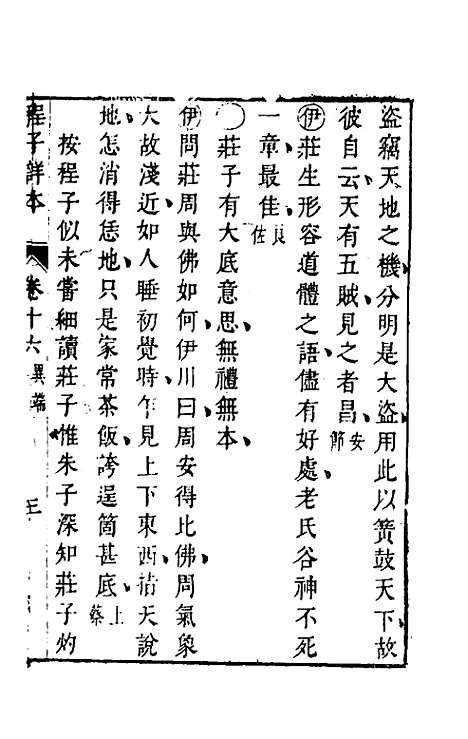 盜竊天地之機分明是大盜用此以簧鼓天下故
彼自云天有五賊見之者昌安節
伊莊生形容道體之語儘有好處老氏谷神不死
一章最佳良佐
莊子有大底意思無禮無本
伊問莊周與佛如何伊川曰周安得比佛周氣象
大故淺近如人睡初覺時乍見上下東西指天說
地怎消得恁地只是家常茶飯誇逞箇甚底上蔡
按程子似未嘗細讀莊子惟朱子深知莊子灼
程子詳本 卷十六 異端